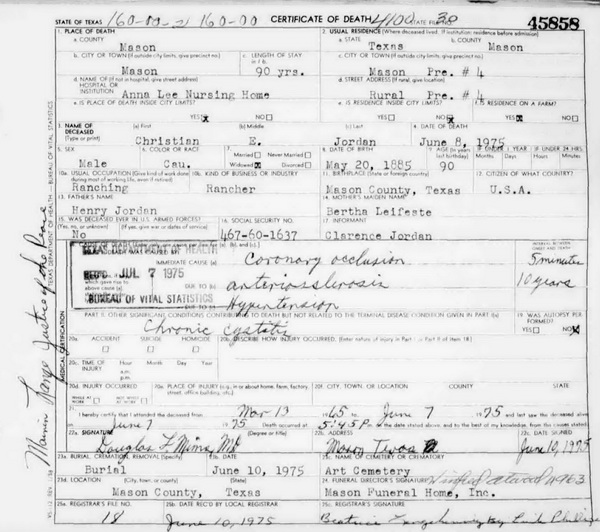 STATE OF TEXAS 160-00-2 160-00 CERTIFICATE OF DEATH 4100 STATE FILE NO. 38 45858
1. PLACE OF DEATH 2. USUAL RESIDENCE (Where deceased lived. If institution: residence before admission)
a. COUNTY a. STATE b. COUNTY
Mason Texas Mason
b. CITY OR TOWN (If outside city limits, give precinct no.) c. LENGTH OF STAY in 1 b. c. CITY OR TOWN (If outside city limits, give precinct no.)
Mason 90 yrs. Mason Pre. # 4
d. NAME OF (If not in hospital, give street address) HOSPITAL OR INSTITUTION d. STREET ADDRESS (If rural, give location)
Anna Lee Nursing Home Rural Pre. # 4
e. IS PLACE OF DEATH INSIDE CITY LIMITS? e. IS RESIDENCE INSIDE CITY LIMITS? f. IS RESIDENCE ON A FARM?
YES NO YES NO YES NO
3. NAME OF DECEASED (Type or print) (a) First (b) Middle (c) Last 4. DATE OF DEATH
Christian E. Jordan June 8, 1975
5. SEX 6. COLOR OR RACE 7. Married Never Married 8. DATE OF BIRTH 9. AGE (In years last birthday) IF UNDER 1 YEAR IF UNDER 24 HRS.
Widowed Divorced Months Days Hours Minutes
Male Cau. May 20, 1885 90
10a. USUAL OCCUPATION (Give kind of work done during most of working life, even if retired) 10b. KIND OF BUSINESS OR INDUSTRY 11. BIRTHPLACE (State or foreign country) 12. CITIZEN OF WHAT COUNTRY?
Ranching Rancher Mason County, Texas U.S.A.
13. FATHER'S NAME 14. MOTHER'S MAIDEN NAME
Henry Jordan Bertha Leifeste
15. WAS DECEASED EVER IN U.S. ARMED FORCES? 16. SOCIAL SECURITY NO. 17. INFORMANT
(Yes, no, or unknown) (If yes, give war or dates of service)
No 467-60-1637 Clarence Jordan
INTERVAL BETWEEN ONSET AND DEATH
IMMEDIATE CAUSE (a) Coronary occlusion 5 minutes
REC'D JUL 7 1975
DUE TO (b) arteriosclerosis 10 years
BUREAU OF VITAL STATISTICS DUE TO (c) Hypertension
PART II. OTHER SIGNIFICANT CONDITIONS CONTRIBUTING TO DEATH BUT NOT RELATED TO THE TERMINAL DISEASE CONDITION GIVEN IN PART I(a) 19. WAS AUTOPSY PERFORMED?
Chronic cystitis YES NO
20a. ACCIDENT SUICIDE HOMICIDE 20b. DESCRIBE HOW INJURY OCCURRED. (Enter nature of injury in Part I or Part II of item 18)
20c. TIME OF INJURY Hour Month Day Year
20d. INJURY OCCURRED 20e. PLACE OF INJURY (e.g., in or about home, farm, factory, street, office building, etc.) 20f. CITY, TOWN, OR LOCATION COUNTY STATE
21. I hereby certify that I attended the deceased from Mar 13 1965 to June 7 1975 and last saw the deceased alive
on June 7 1975 Death occurred at 5:45 P m on the date stated above, and to the best of my knowledge, from the causes stated.
22a. SIGNATURE (Degree or title) 22b. ADDRESS 22c. DATE SIGNED
Douglas L. Mims, Md Mason Texas June 10, 1975
23a. BURIAL, CREMATION, REMOVAL (Specify) 23b. DATE 23c. NAME OF CEMETERY OR CREMATORY
Burial June 10, 1975 Art Cemetery
23d. LOCATION (City, town, or county) (State) 24. FUNERAL DIRECTOR'S SIGNATURE
Mason County, Texas Mason Funeral Home, Inc.
25a. REGISTRAR'S FILE NO. 25b. DATE REC'D BY LOCAL REGISTRAR 25c. REGISTRAR'S SIGNATURE
18 June 10, 1975 Beatrice
Justice of the Peace
TEXAS DEPARTMENT OF HEALTH — BUREAU OF VITAL STATISTICS
MEDICAL CERTIFICATION